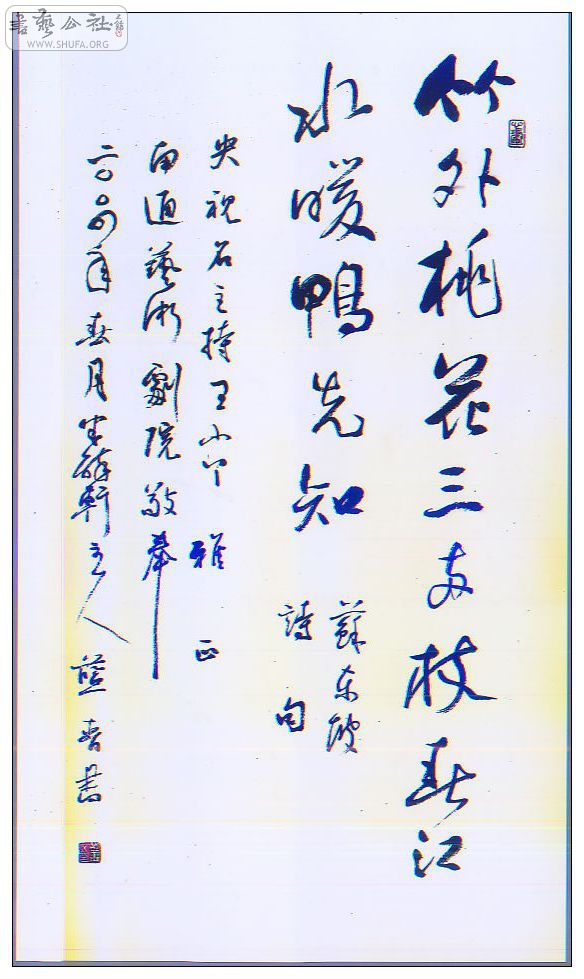 書藝公社
WWW.SHUFA.ORG
竹外桃花三两枝春江
水暖鴨先知
蘇东坡
詩句
央視名主持王小丫 雅正
南通藝術劇院敬奉
二〇〇四年春月半醉軒主人 書